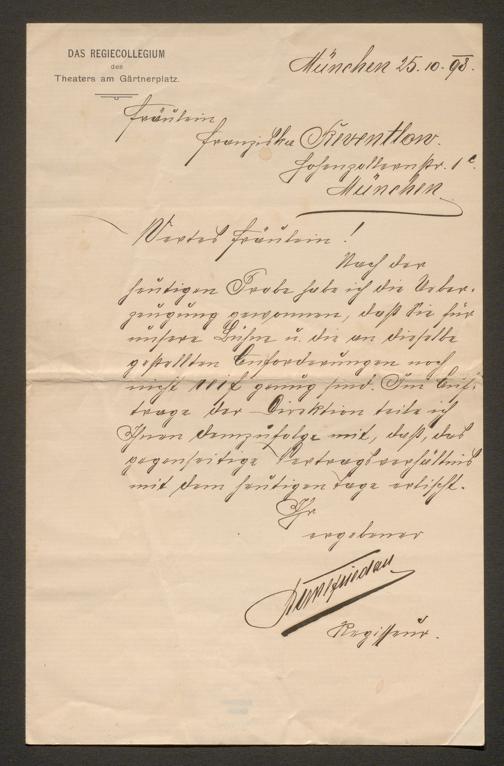 DAS REGIECOLLEGIUM
des
Theaters am Gärtnerplatz.
München 25.10.98.
Fräulein
Franziska Reventlow.
Hohenzollernstr. 1c.
München
Wertes Fräulein!
Nach der
heutigen Probe habe ich die Ueber-
zeugung gewonnen, daß Sie für
unsere Bühne u. die an dieselbe
gestellten Anforderungen noch
nicht reif genug sind. Im Auf-
trage der Direktion teile ich
Ihnen demzufolge mit, daß, das
gegenseitige Vertragsverhältnis
mit dem heutigen Tage erlischt.
Ihr
ergebener
Regisseur.